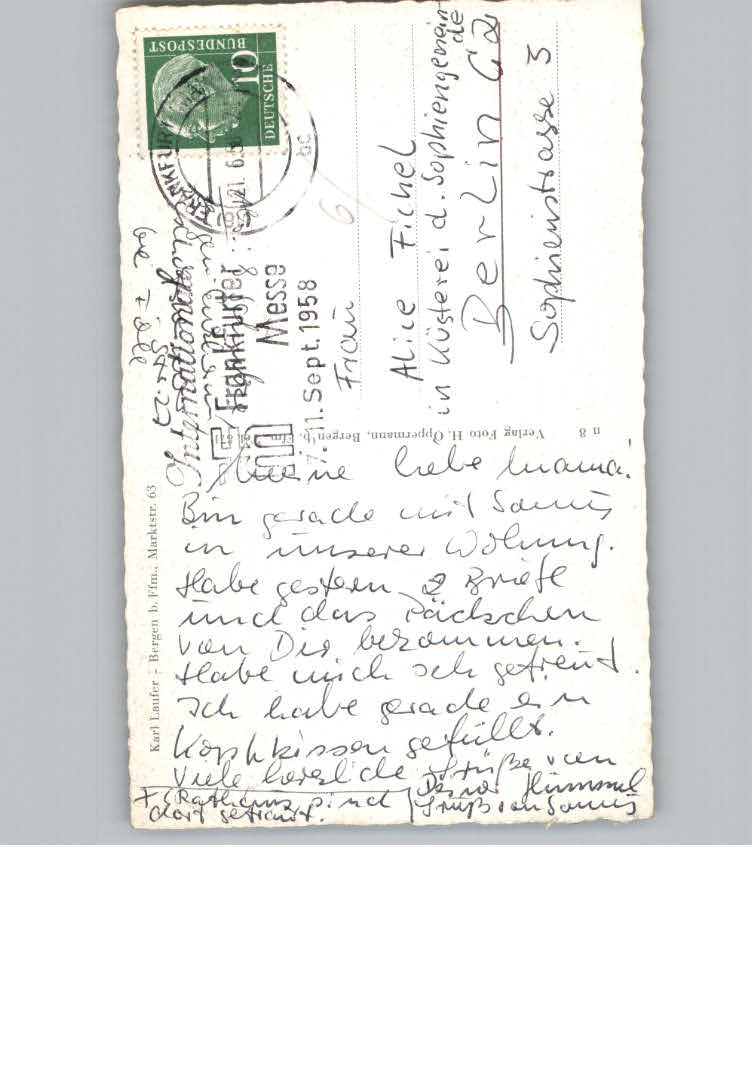 Meine liebe Mama!
Bin gerade mit
in unserer Wohnung.
Habe gestern 2 Briefe
und das Päckchen
von Dir bekommen.
Habe mich seh gefreut.
Ich habe gerade ein
Kopfkissen gefüllt.
Viele herzliche Grüße von
Rathaus sind
dort getraut.
Karl Laufer - Bergen b. Ffm., Marktstr. 63
n 8 Verlag Foto H. Oppermann, Bergen b. Ffm.
DEUTSCHE
BUNDESPOST
10
FRANKFURT
21. 6. 58
Internationale
Frankfurter
Messe
7.-11. Sept. 1958
Frau
Alice Fichel
in Küsterei d. Sophiengemein
de
Berlin C2
Sophienstrasse 3